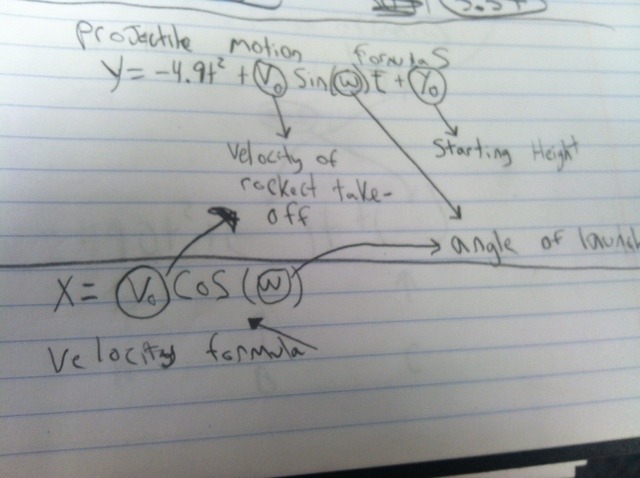 Projectile motion formulas
y = -4.9t² + V₀ Sin(w)t + Y₀
Velocity of
rockect take-
off
Starting Height
angle of launch
X = V₀ Cos (w)
Velocity formula